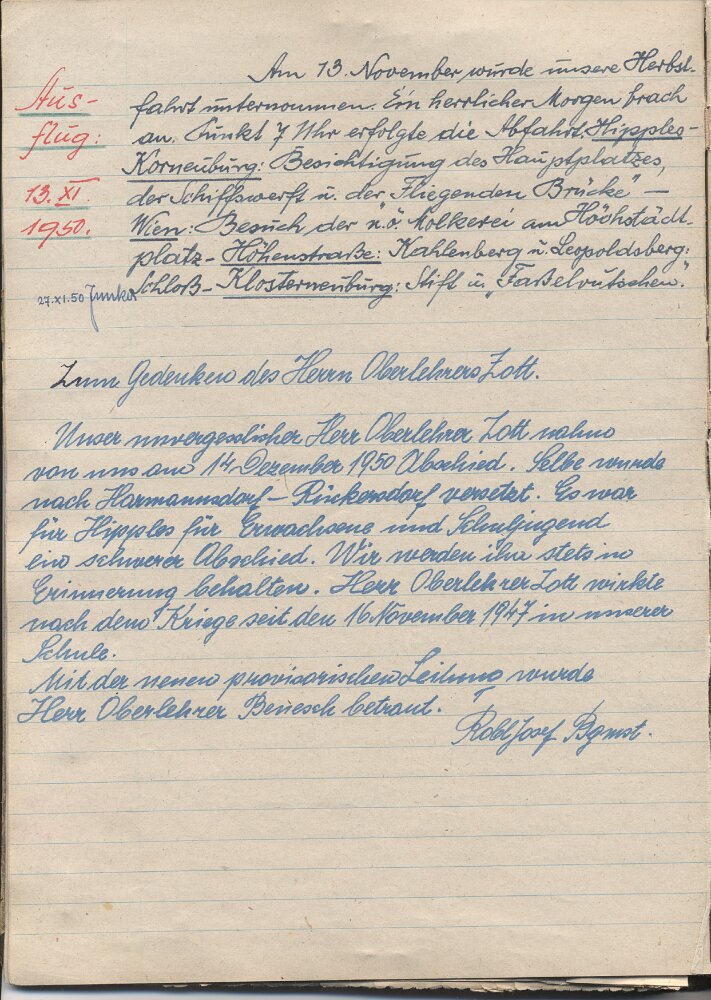 Am 13. November wurde unsere Herbst-
Aus-
fahrt unternommen. Ein herrlicher Morgen brach
flug:
an. Punkt 7 Uhr erfolgte die Abfahrt. Hipples-
Korneuburg: Besichtigung des Hauptplatzes,
13. XI.
der Schiffswerft u. der "Fliegenden Brücke" –
1950.
Wien: Besuch der n.ö. Molkerei am Höchstädt-
platz – Höhenstraße: Kahlenberg u. Leopoldsberg:
27.XI.50 Junker
Schloß – Klosterneuburg: Stift u. „Faßelrutschen."
Zum Gedenken des Herrn Oberlehrers Zott.
Unser unvergesslicher Herr Oberlehrer Zott nahm
von uns am 14. Dezember 1950 Abschied. Selbe wurde
nach Harmannsdorf – Rückersdorf versetzt. Es war
für Hipples für Erwachsene und Schuljugend
ein schwerer Abschied. Wir werden ihn stets in
Erinnerung behalten. Herr Oberlehrer Zott wirkte
nach dem Kriege seit den 16 November 1947 in unserer
Schule.
Mit der neuen provisorischen Leitung wurde
Herr Oberlehrer Benesch betraut.
Robl Josef Bgmst.